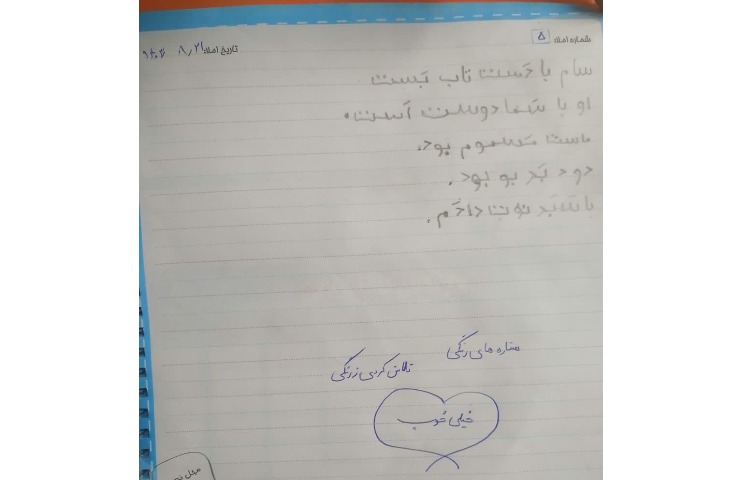 شماره املا: ۵
تاریخ املا: ۸/۲۱
سام با دَست تاب بَست
او با شما دوست اَست.
ماست مَسموم بود.
دود بَد بو بود.
با سَبَد توت دادَم.
ستاره های رنگی
تلاش کردی زرنگی
خیلی خوب